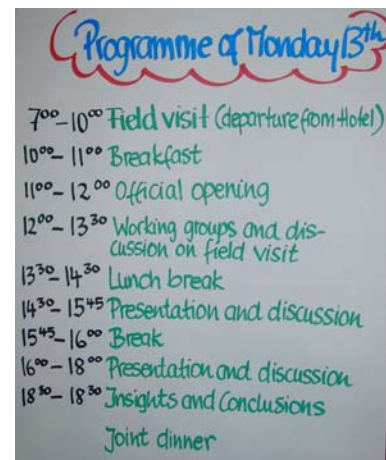 Programme of Monday 13th
7⁰⁰-10⁰⁰ Field visit (departure from Hotel)
10⁰⁰-11⁰⁰ Breakfast
11⁰⁰-12⁰⁰ Official opening
12⁰⁰-13³⁰ Working groups and dis-
cussion on field visit
13³⁰-14³⁰ Lunch break
14³⁰-15⁴⁵ Presentation and discussion
15⁴⁵-16⁰⁰ Break
16⁰⁰-18⁰⁰ Presentation and discussion
18³⁰-18³⁰ Insights and Conclusions
Joint dinner